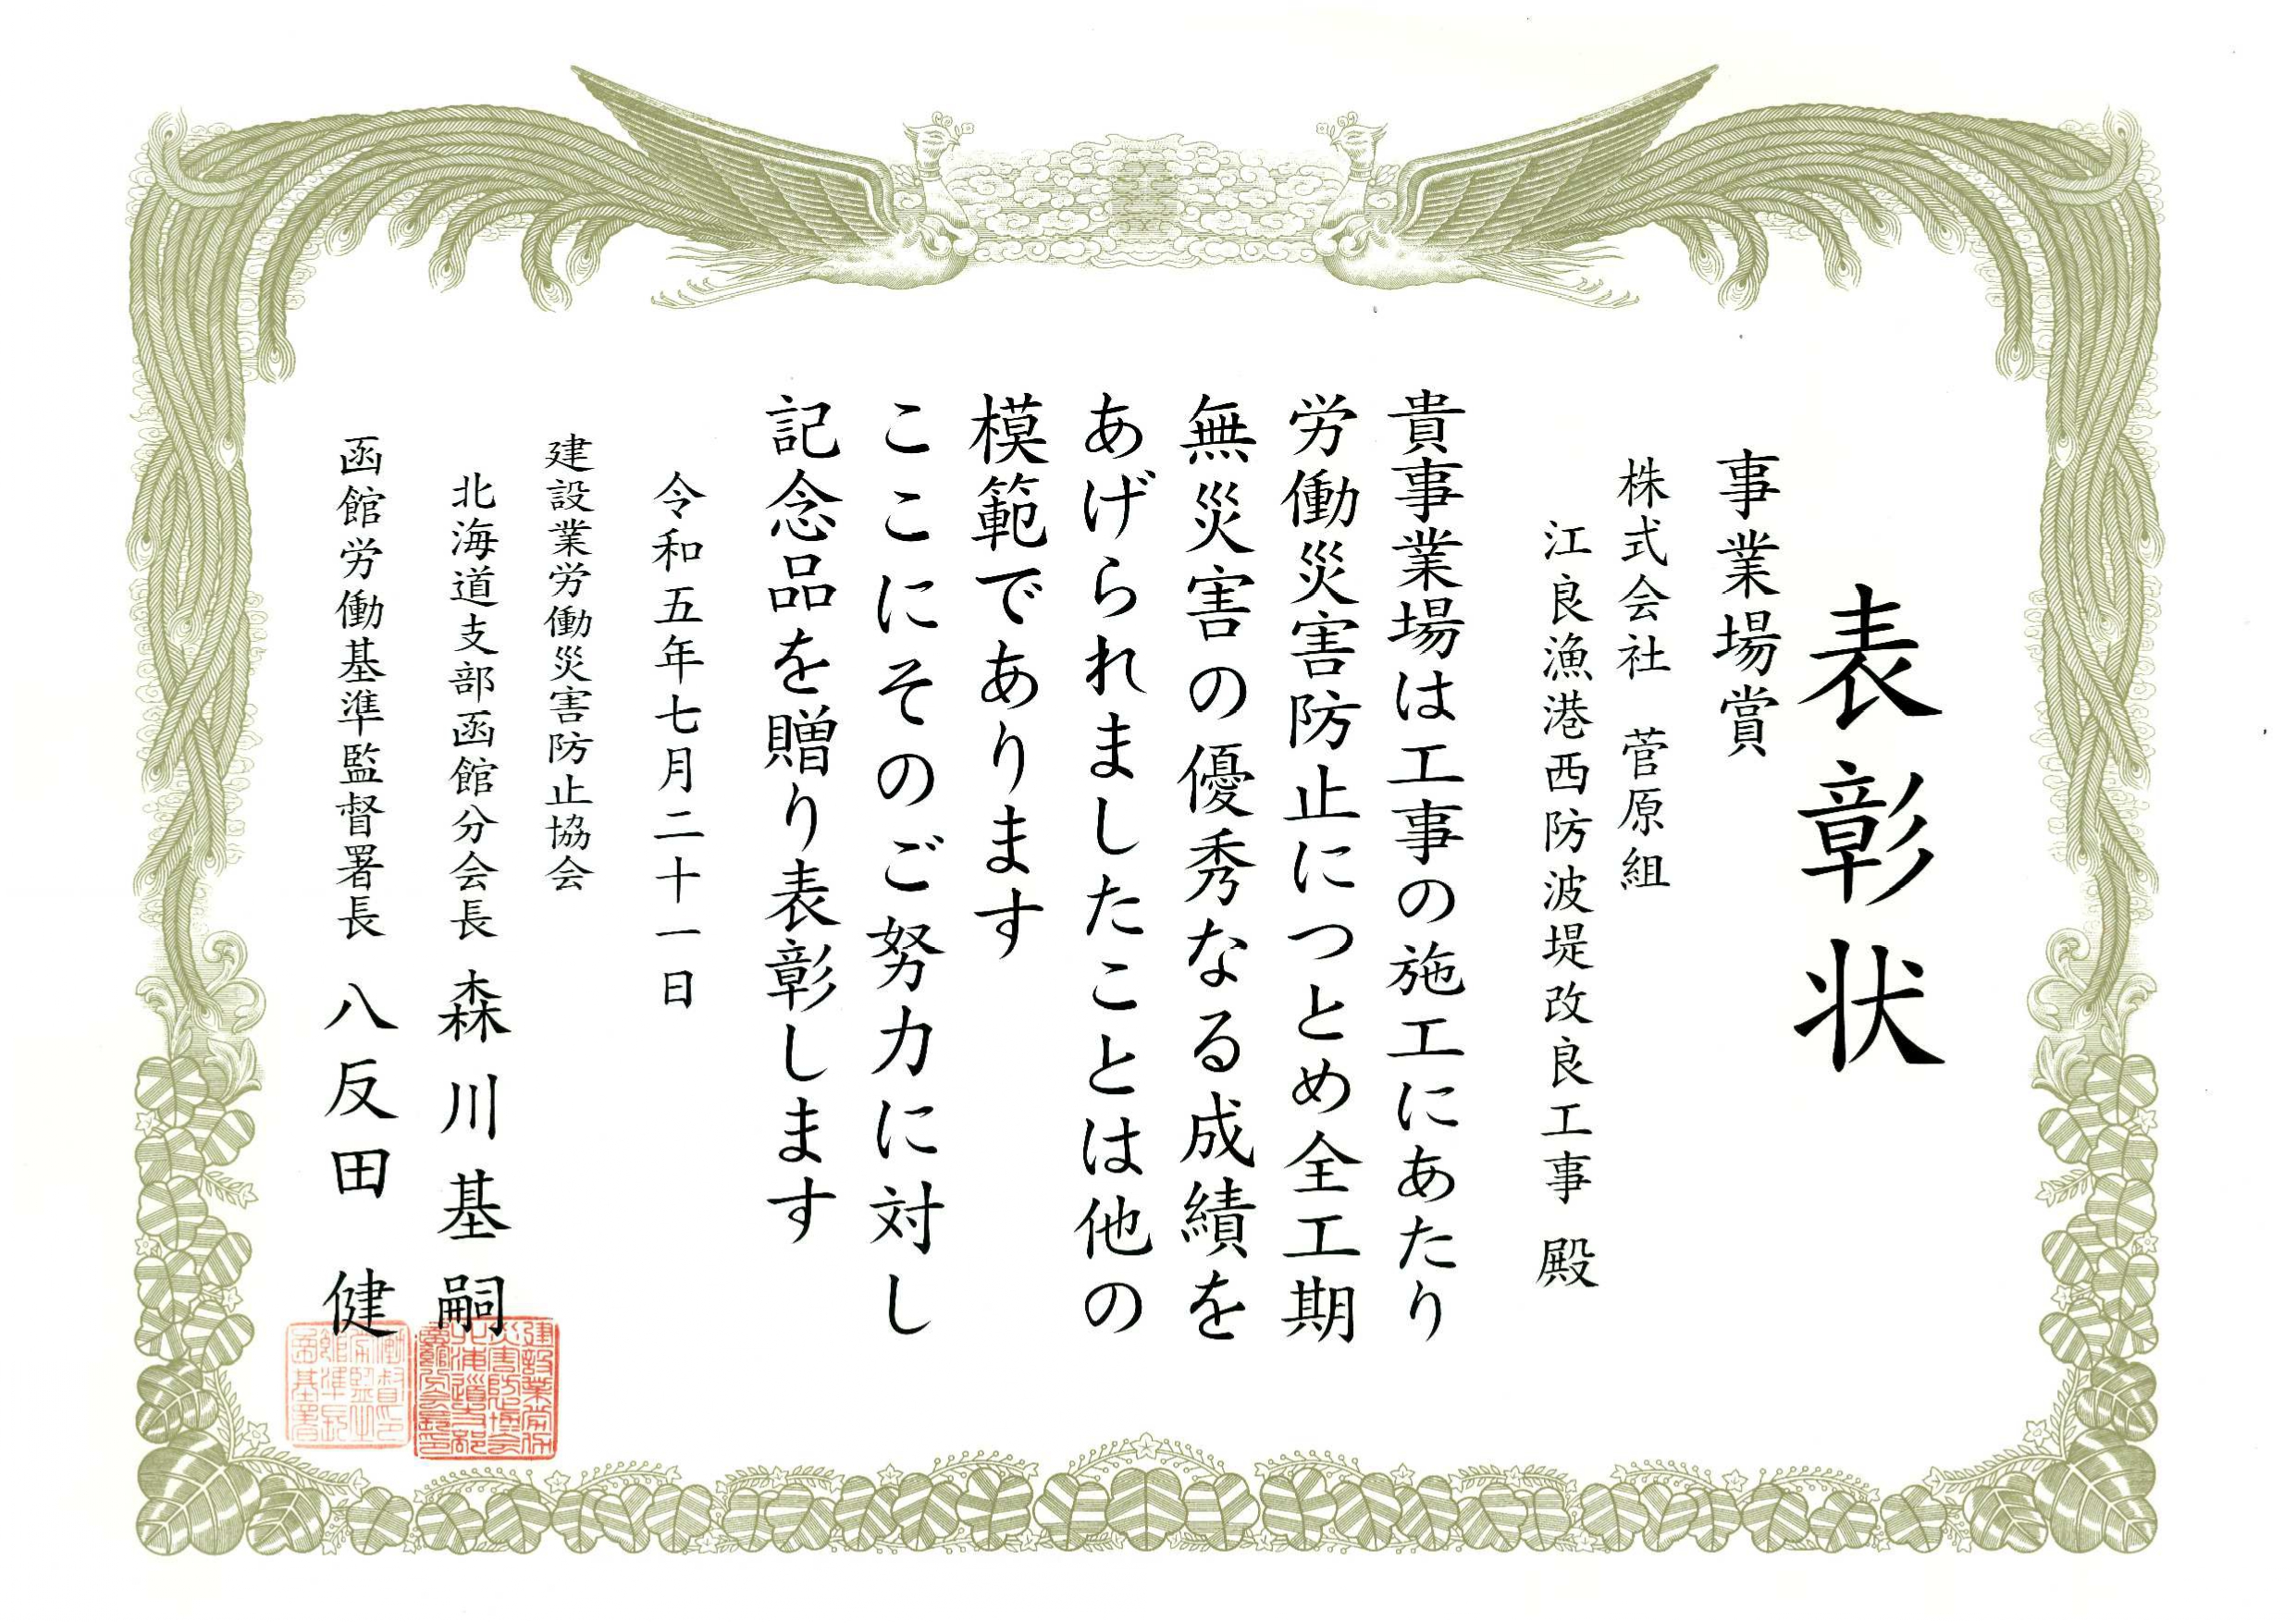 表彰状
事業場賞
株式会社 菅原組
江良漁港西防波堤改良工事 殿
貴事業場は工事の施工にあたり
労働災害防止につとめ全工期
無災害の優秀なる成績を
あげられましたことは他の
模範であります
ここにそのご努力に対し
記念品を贈り表彰します
令和五年七月二十一日
建設業労働災害防止協会
北海道支部函館分会長 森川基嗣
函館労働基準監督署長 八反田 健